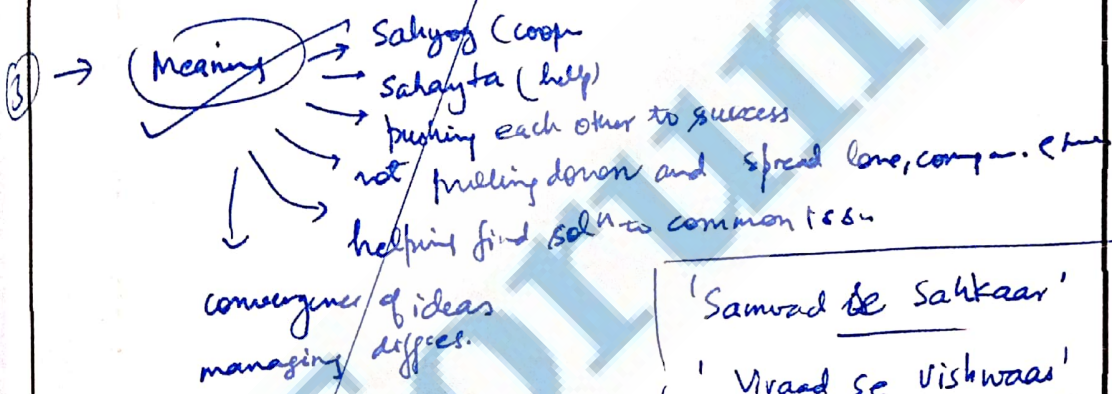 ③ → Meaning
Sahyog (coop
Sahayta (help)
pushing each other to success
not pulling down and spread love, compa.
helping find solⁿ to common issu
convergence of ideas
managing diffces.
'Samvad se Sahkaar'
'Vivaad se Vishwaas'